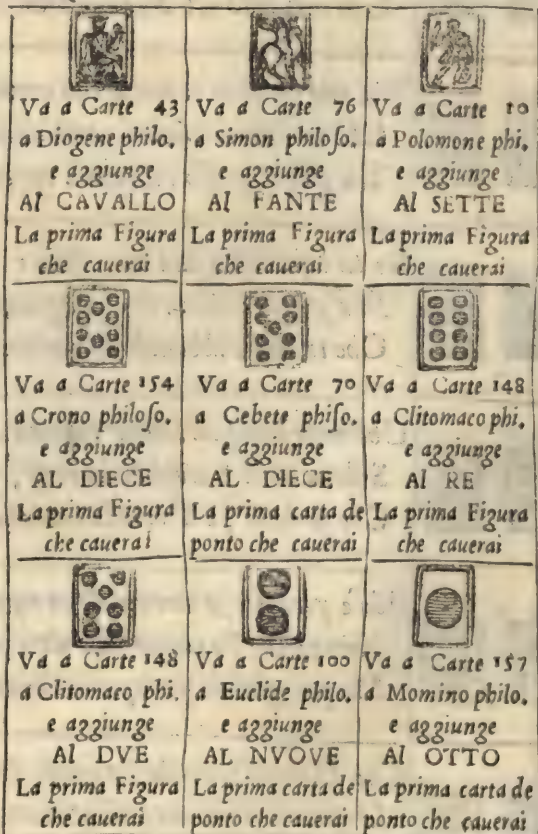 Va a Carte 43
a Diogene philo.
e aggiunge
Al CAVALLO
La prima Figura
che cauerai
Va a Carte 76
a Simon philoso.
e aggiunge
Al FANTE
La prima Figura
che cauerai
Va a Carte 10
a Polomone phi,
e aggiunge
Al SETTE
La prima Figura
che cauerai
Va a Carte 154
a Crono philoso.
e aggiunge
AL DIECE
La prima Figura
che cauerai
Va a Carte 70
a Cebete phiſo.
e aggiunge
AL DIECE
La prima carta de
ponto che cauerai
Va a Carte 148
a Clitomaco phi,
e aggiunge
Al RE
La prima Figura
che cauerai
Va a Carte 148
a Clitomaco phi.
e aggiunge
Al DVE
La prima Figura
che cauerai
Va a Carte 100
a Euclide philo.
e aggiunge
AL NVOVE
La prima carta de
ponto che cauerai
Va a Carte 157
a Momino philo.
e aggiunge
Al OTTO
La prima carta de
ponto che cauerai